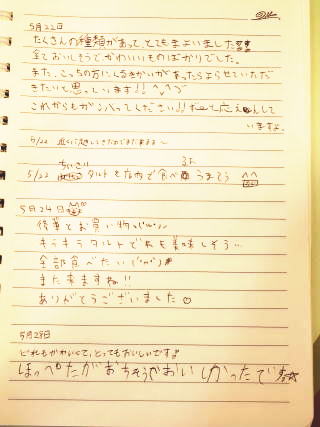 5月22日
たくさんの種類があって、とてもまよいました
全ておいしそうで、かわいいものばかりでした。
また、こっちの方にくるきかいがあったらよらせていただ
きたいと思っています!! ^_^
これからもがんばってください!! ずっと応えんして
いますよ。
5/22
ちいさい
5/22 タルトを店内で食べ うまそう ^^
5月24日
後輩とお買い物
キラキラタルトでどれも美味しそう…
全部食べたい(^^)
また来ますね!!
ありがとうございました
5月28日
どれもかわいくて、とってもおいしいです♪
ほっぺたがおちそうでおいしかったです